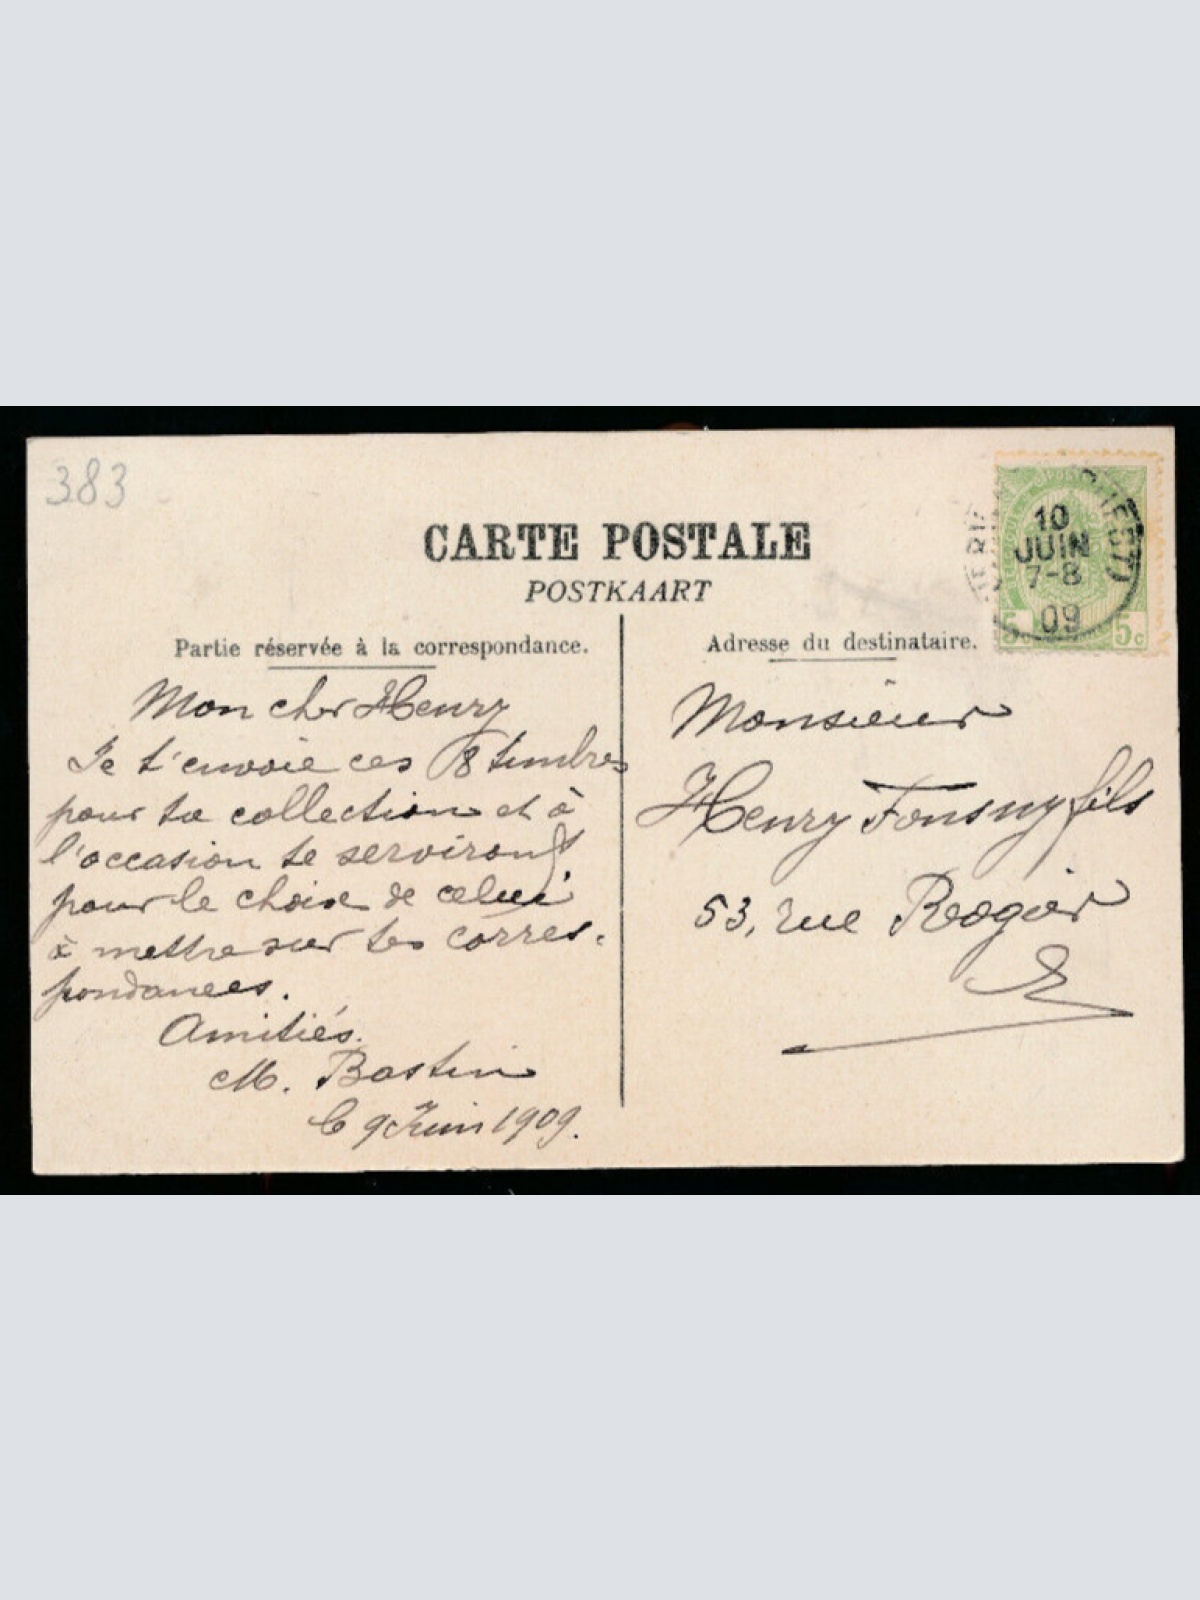 383
CARTE POSTALE
POSTKAART
Partie réservée à la correspondance.
Mon cher Henry
Je t'envoie ces 8 timbres
pour ta collection et à
l'occasion te serviront
pour le choix de celui
à mettre sur tes corres-
pondances.
Amitiés.
M. Bastin
le 9 Juin 1909.
Adresse du destinataire.
Monsieur
Henry Fonsny fils
53, rue Rogier
10
JUIN
7-8
09
(OUEST)
5c 5c